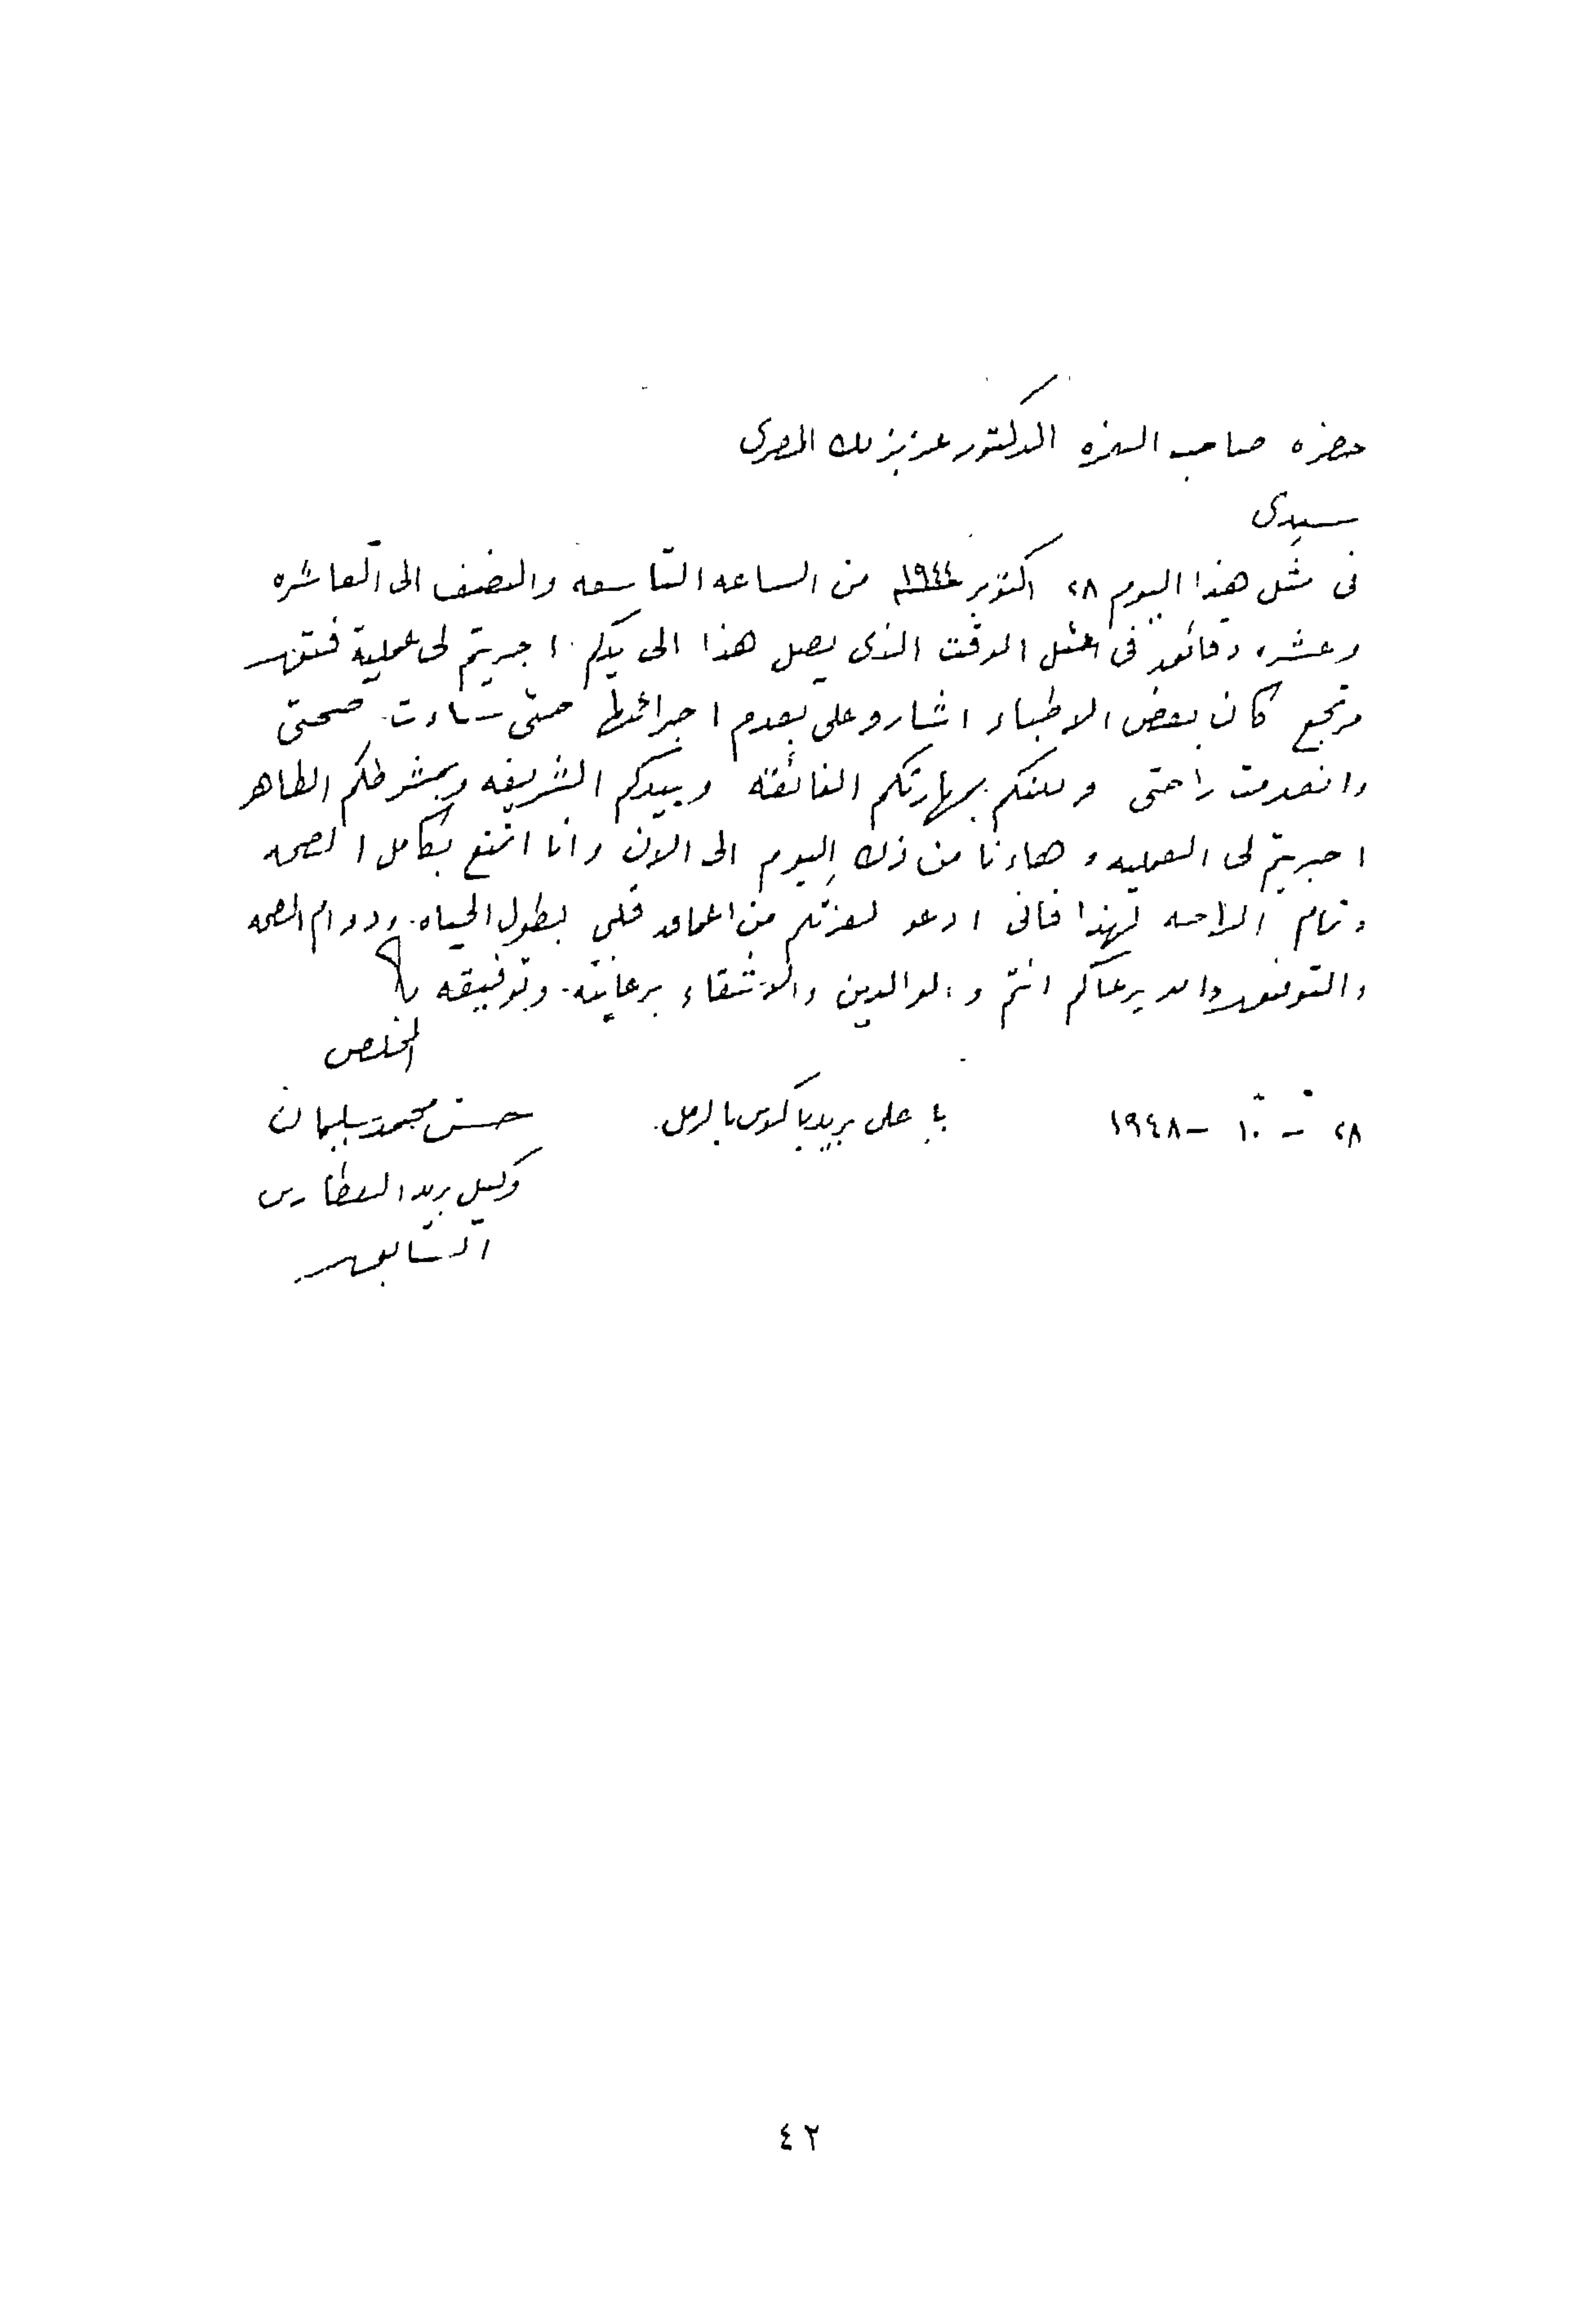 حضره صاحب العزه الدكتور عزيز بك المصرى
سيدى
فى مثل هذا اليوم ٢٨ اكتوبر ١٩٤٤ من الساعه التاسعه والنصف الى العاشره
وعشره دقائق فى مثل الوقت الذى يصل هذا الى يدكم اجريتم لى عملية فتق
كان بعض الاطباء اشارو على بعدم اجرائها حتى ساءت صحتى
وانعدمت راحتى ولكنكم بمهارتكم الفائقة وبيدكم الشريفه وبمشرطكم الطاهر
اجريتم لى العمليه وهاءنا من ذلك اليوم الى الان وانا اتمتع بكامل الصحه
وتمام الراحه لهذا فانى ادعو لعزتكم من اعماق قلبى بطول الحياه ودوام الصحه
والتوفيق والله يرعاكم انتم والوالدين والاشقاء برعايته وتوفيقه
المخلص
حسن محمد سليمان
٢٨ - ١٠ - ١٩٤٨ على بريد باكوس بالرمل
وكيل بريد العطارين
السابق
٤٢